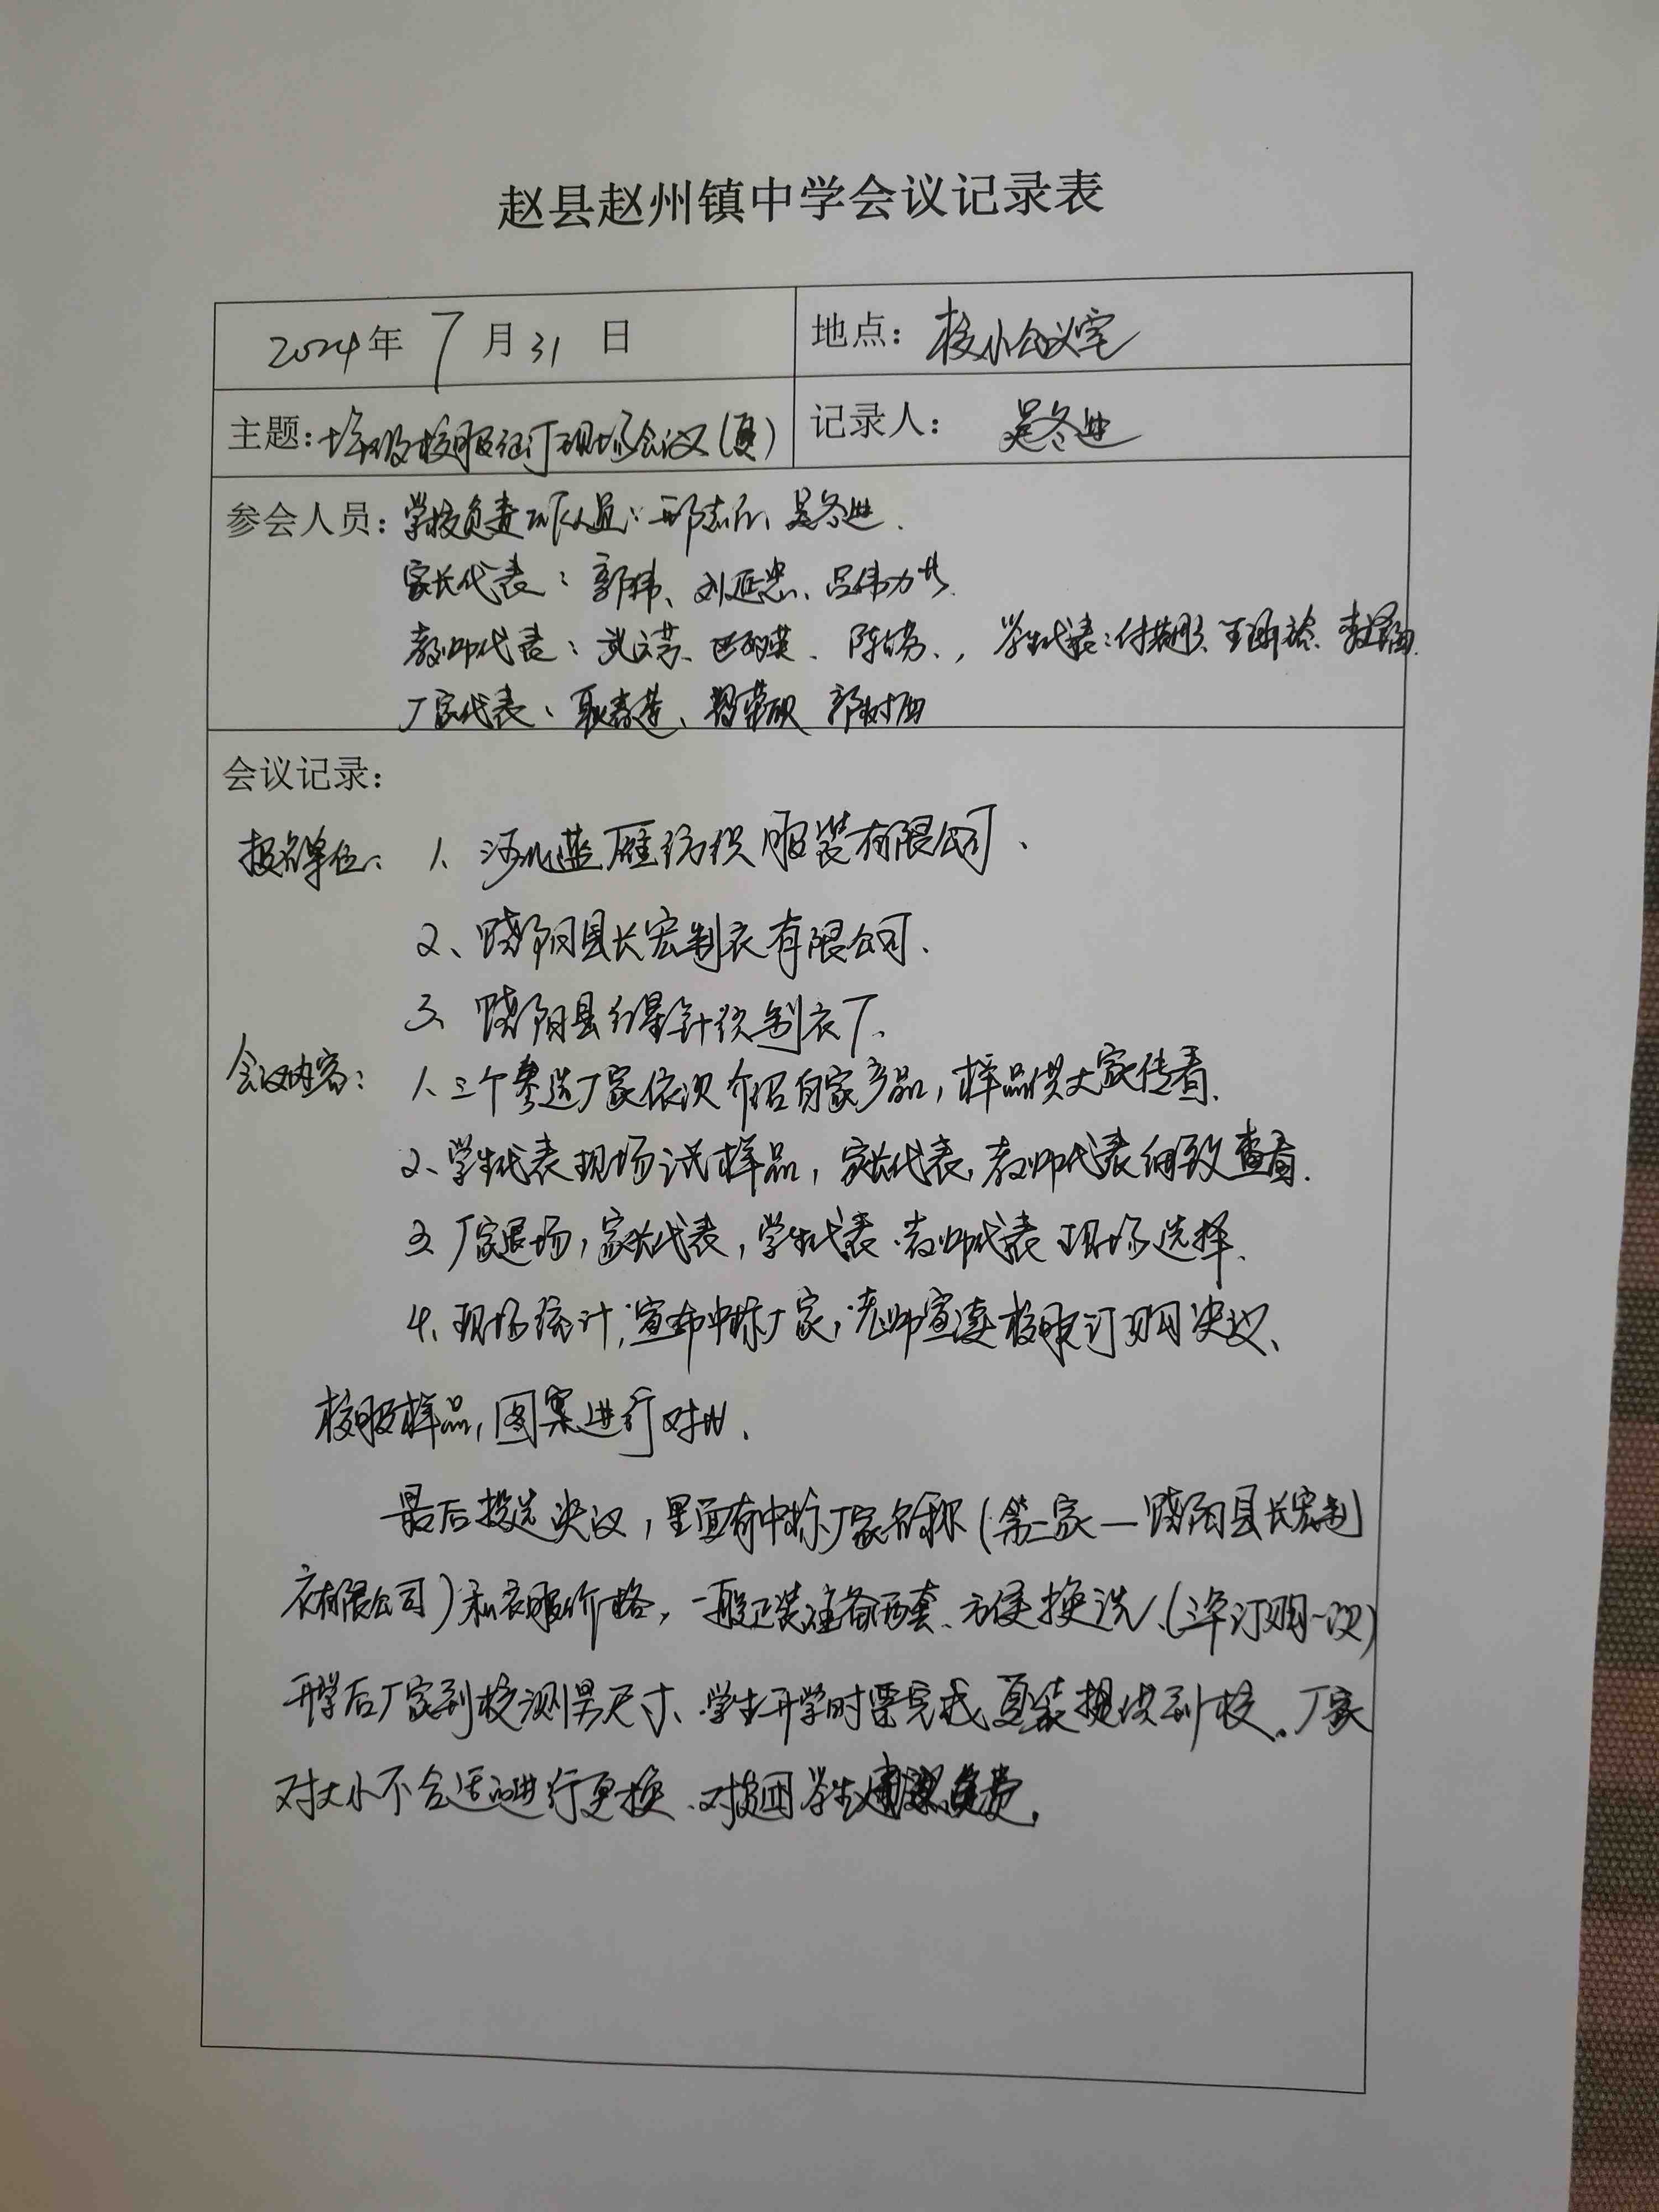 赵县赵州镇中学会议记录表
2024年 7 月 31 日 地点：校小会议室
主题：七年级校服征订现场会议(夏) 记录人：吴冬进
参会人员：学校负责工作人员：邢志 吴冬进.
家长代表：郭伟、刘延忠、吕伟力
教师代表：武文芳、 学生代表：
厂家代表：耿春莲、
会议记录：
报名单位：1、河北蓝雁纺织服装有限公司、
2、饶阳县长宏制衣有限公司.
3、饶阳县红星针织制衣厂、
会议内容：1、三个参选厂家依次介绍自家产品，样品供大家传看.
2、学生代表现场试样品，家长代表,教师代表细致查看.
3、厂家退场，家长代表，学生代表、教师代表现场选择.
4、现场统计,宣布中标厂家，老师宣读校服订购决议、
校服样品，图案进行对比.
最后投选决议，里面有中标厂家名称(第二家—饶阳县长宏制
衣有限公司)和衣服价格，一般正装准备两套、方便换洗、(三年订购一次)
开学后厂家到校测男尺寸、学生开学时要完成夏装提供到校。厂家
对大小不合适的进行更换、对贫困学生 免费.